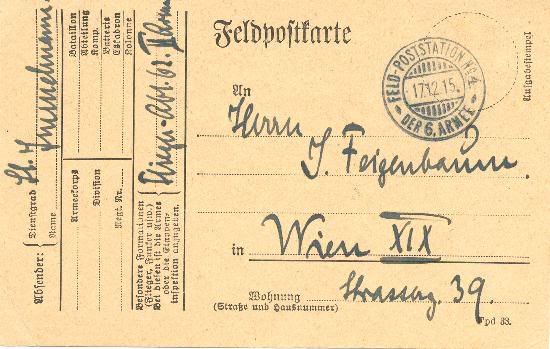 Feldpostkarte
FELD-POSTSTATION No. 4
17.12.15.
DER 6. ARMEE
Aufgabestempel
An
Herrn
J. Feigenbaum
in Wien XIX
Wohnung
(Straße und Hausnummer)
Strassag. 39.
Fpd 33.
Absender:
Dienstgrad
Name
Lt. H
Armeekorps
Division
Regt. Nr.
Bataillon
Abteilung
Komp.
Batterie
Eskadron
Kolonne
Besondere Formationen
(Flieger, Funker usw.)
Bei diesen ist die Armee
oder die Etappen-
inspektion anzugeben
Flieger-Abt. 62.